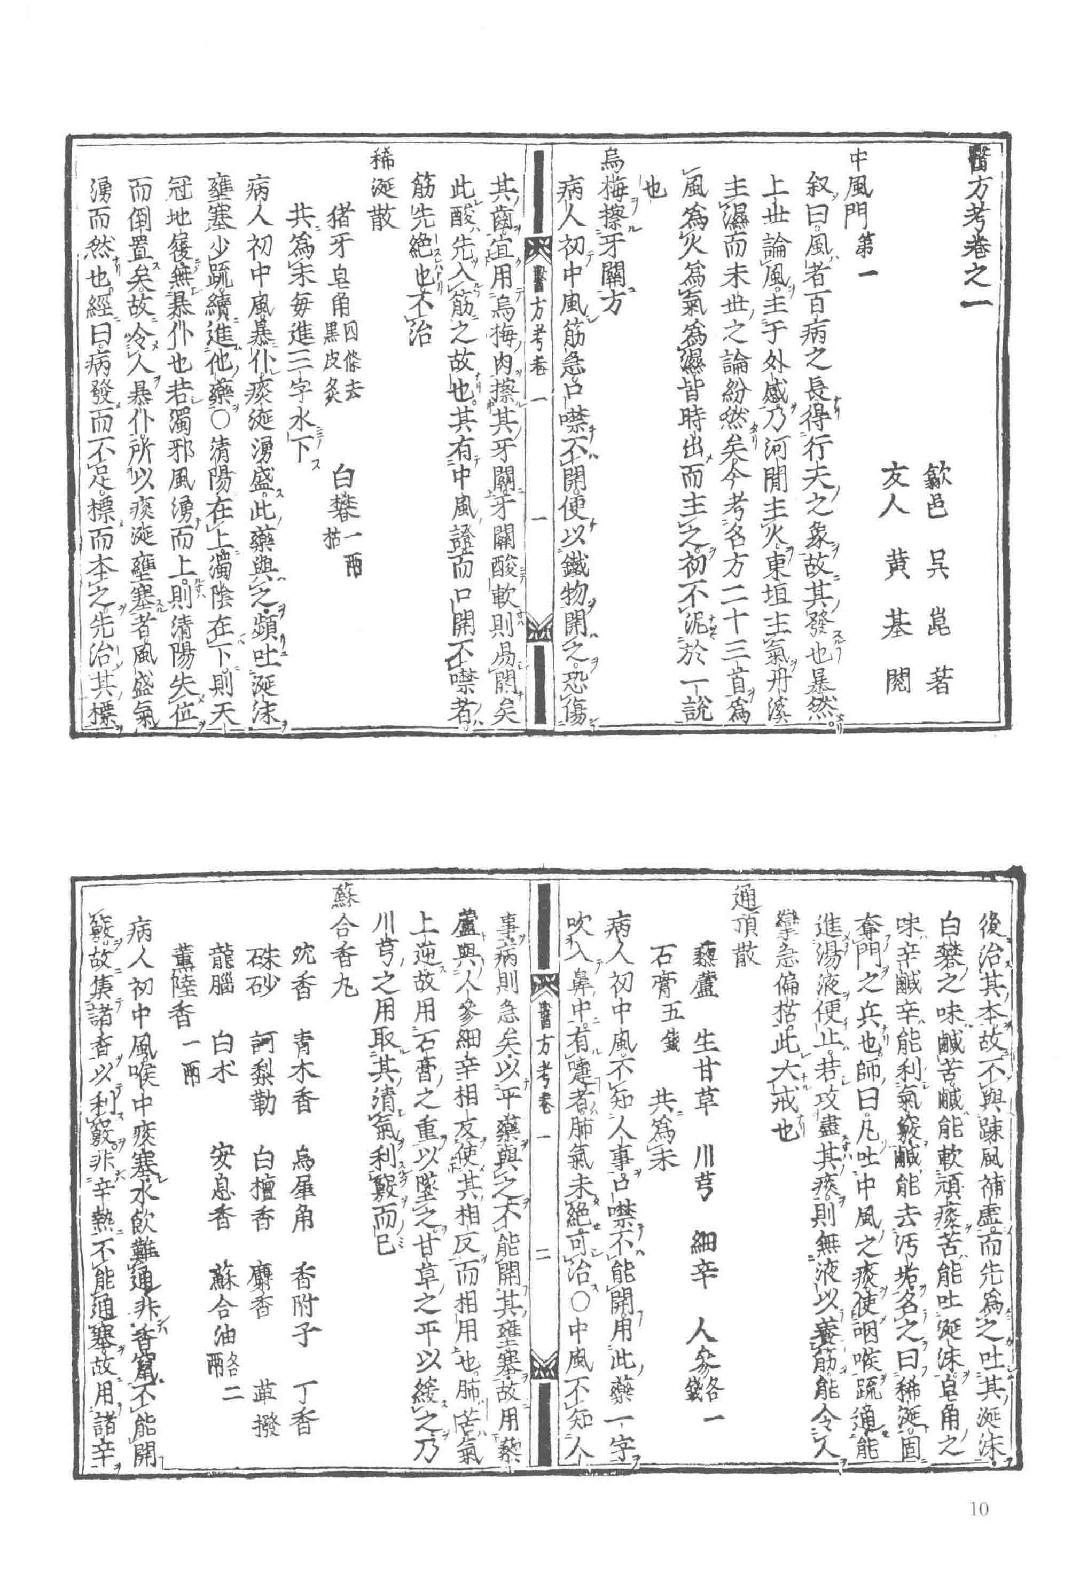 醫方考卷之一
歙邑 吳崑 著
友人 黃基 閱
中風門第一
叙曰風者百病之長得行天之象故其發也暴然
上世論風主于外感乃河間主火東垣主氣丹溪
主濕而末世之論紛然矣今考名方二十三首為
風為火為氣為濕皆時出而主之初不泥於一說
也
烏梅擦牙關方
病人初中風筋急口噤不開便以鐵物開之恐傷
醫方考卷一 一
其齒宜用烏梅肉擦其牙關牙關酸軟則易開矣
此酸先入筋之故也其有中風證而口開不噤者
筋先絕也不治
稀涎散
猪牙皂角四條去黑皮炙 白礬一兩枯
共為末每進三字水下
病人初中風暴仆痰涎湧盛此藥與之頻吐涎沫
壅塞少疏續進他藥○清陽在上濁陰在下則天
冠地履無暴仆也若濁邪風湧而上則清陽失位
而倒置矣故令人暴仆所以痰涎壅塞者風盛氣
湧而然也經曰病發而不足標而本之先治其標
後治其本故不與踈風補虛而先為之吐其涎沫
白礬之味鹹苦鹹能軟頑痰苦能吐涎沫皂角之
味辛鹹辛能利氣竅鹹能去汚垢名之曰稀涎固
奪門之兵也師曰凡吐中風之痰使咽喉疏通能
進湯液便止若攻盡其痰則無液以養筋能令人
攣急偏枯此大戒也
通頂散
藜蘆 生甘草 川芎 細辛 人參各一錢
石膏五錢 共為末
病人初中風不知人事口噤不能開用此藥一字
吹入鼻中有嚏者肺氣未絕可治○中風不知人
醫方考卷一 二
事病則急矣以平藥與之不能開其壅塞故用藜
蘆與人參細辛相反使其相反而相用也肺苦氣
上逆故用石膏之重以墜之甘草之平以緩之乃
川芎之用取其清氣利竅而已
蘇合香丸
沉香 青木香 烏犀角 香附子 丁香
硃砂 訶梨勒 白檀香 麝香 蓽撥
龍腦 白朮 安息香 蘇合油各二兩
薰陸香一兩
病人初中風喉中痰塞水飲難通非香竄不能開
竅故集諸香以利竅非辛熱不能通塞故用諸辛
10